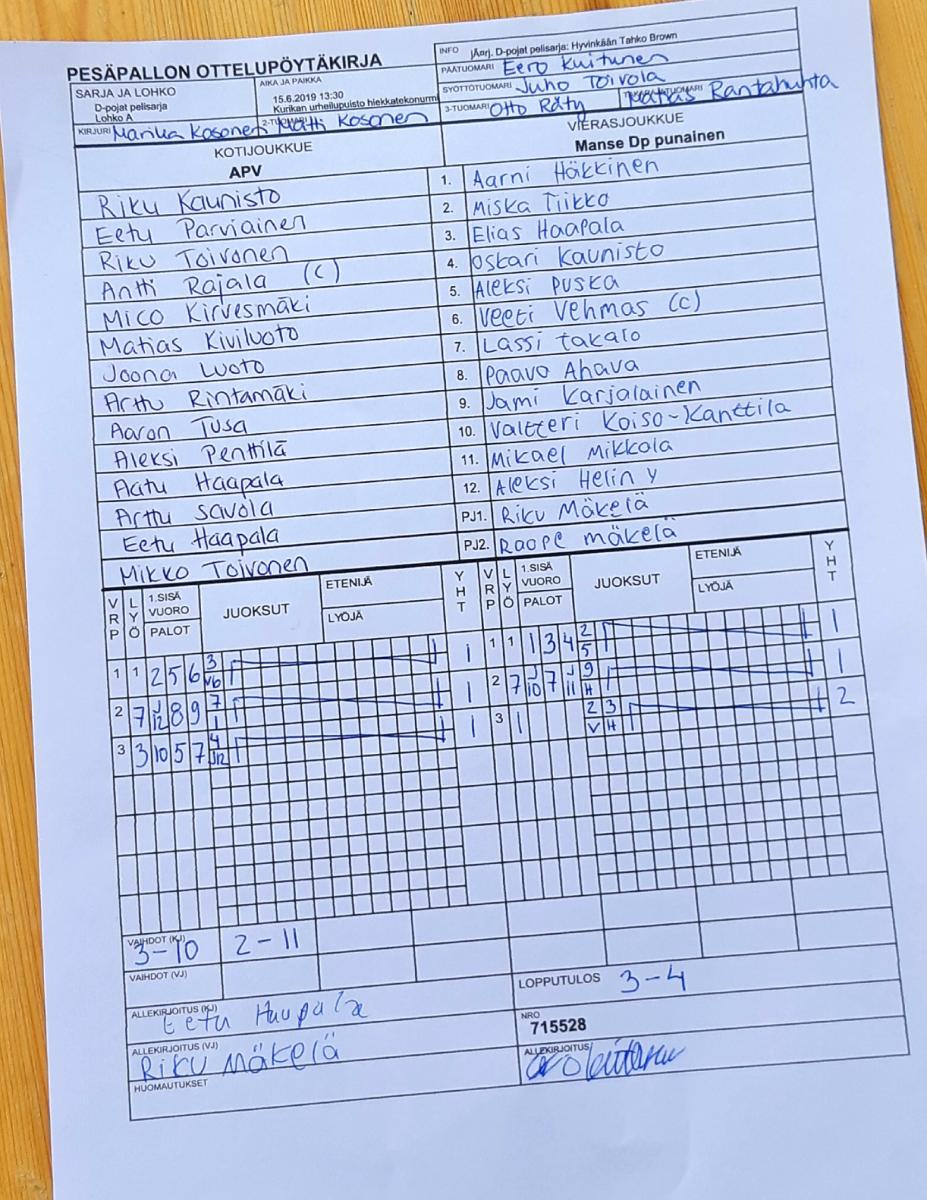 PESÄPALLON OTTELUPÖYTÄKIRJA
INFO jÄarj. D-pojat pelisarja: Hyvinkään Tahko Brown
PÄÄTUOMARI Eero Kuitunen
SARJA JA LOHKO
D-pojat pelisarja
Lohko A
AIKA JA PAIKKA
15.6.2019 13:30
Kurikan urheilupuisto hiekkatekonurmi
SYÖTTÖTUOMARI Juho Toivola
3-TUOMARI Otto Räty
Rantahuhta
KIRJURI Marika Kosonen
2-TUOMARI Matti Kosonen
KOTIJOUKKUE
APV
VIERASJOUKKUE
Manse Dp punainen
Riku Kaunisto 1. Aarni Häkkinen
Eetu Parviainen 2. Miska Tiikko
Riku Toivonen 3. Elias Haapala
Antti Rajala (C) 4. Oskari Kaunisto
Mico Kirvesmäki 5. Aleksi Puska
Matias Kiviluoto 6. Veeti Vehmas (C)
Joona Luoto 7. Lassi takalo
Arttu Rintamäki 8. Paavo Ahava
Aaron Tusa 9. Jami Karjalainen
Aleksi Penttilä 10. Valtteri Koiso-Kanttila
Aatu Haapala 11. Mikael Mikkola
Arttu Savola 12. Aleksi Helin y
Eetu Haapala PJ1. Riku Mäkelä
Mikko Toivonen PJ2. Roope mäkelä
VRP LYÖ 1.SISÄ VUORO PALOT JUOKSUT ETENIJÄ LYÖJÄ YHT VRP LYÖ 1.SISÄ VUORO PALOT JUOKSUT ETENIJÄ LYÖJÄ YHT
1 1 2 5 6 3 V6 1 1 1 1 3 4 2 5 1
2 7 J 12 8 9 7 1 1 2 7 J 10 7 J 11 9 H 1
3 3 10 5 7 4 J12 1 3 1 2 V 3 H 2
VAIHDOT (KJ) 3-10 2-11
VAIHDOT (VJ)
LOPPUTULOS 3-4
ALLEKIRJOITUS (KJ) Eetu Haapala
NRO
715528
ALLEKIRJOITUS (VJ) Riku Mäkelä
ALLEKIRJOITUS
HUOMAUTUKSET